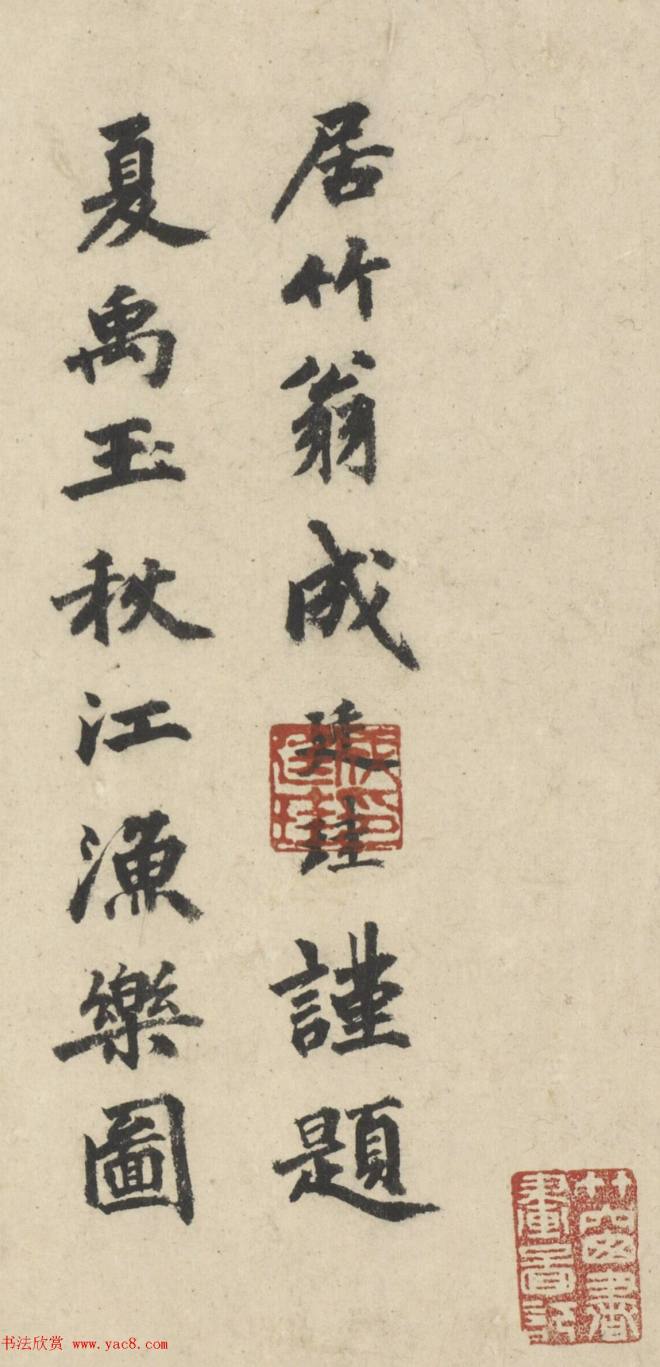 居竹翁成廷珪謹題
夏禹玉秋江漁樂圖
书法欣赏 www.yac8.com